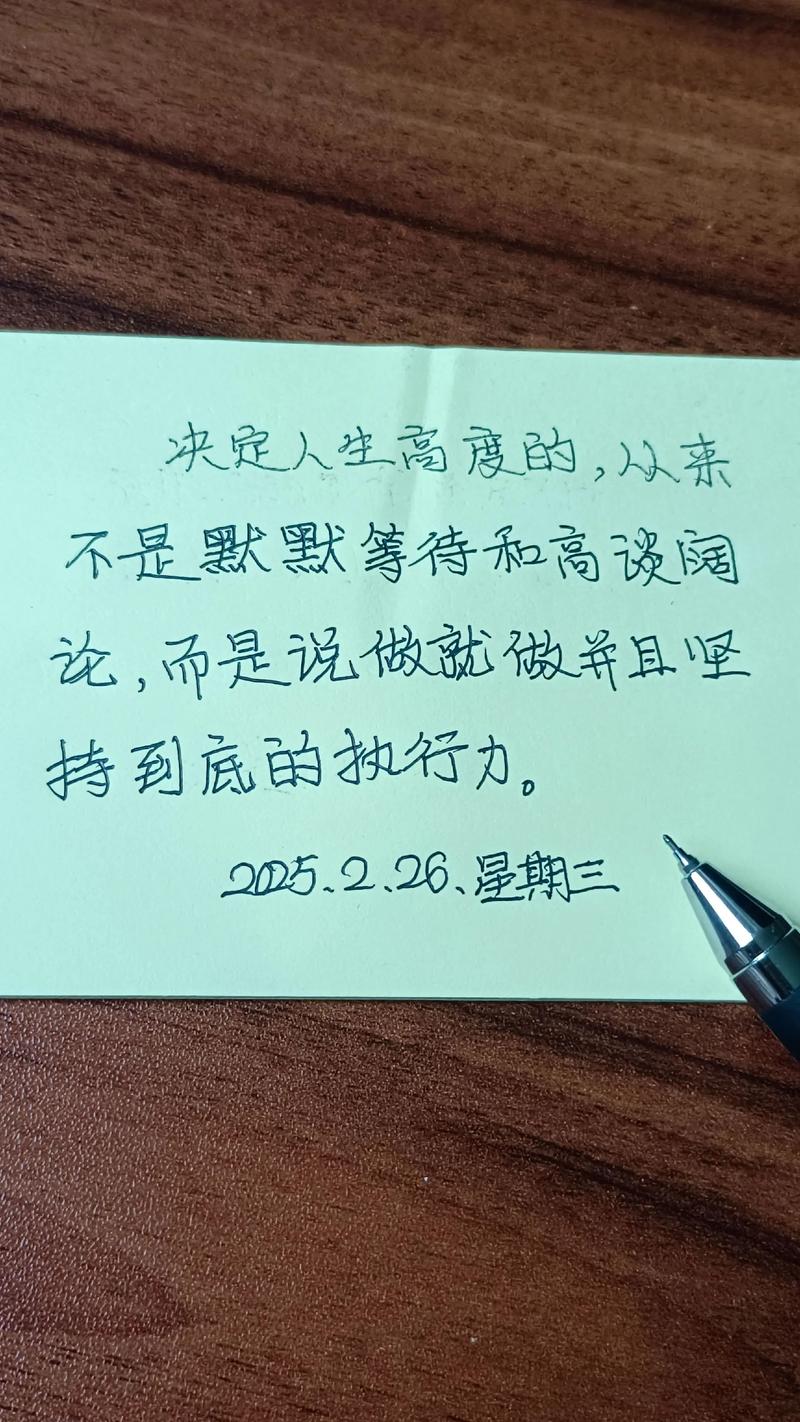 决定人生高度的,从来
不是默默等待和高谈阔
论,而是说做就做并且坚
持到底的执行力。
2025.2.26.星期三